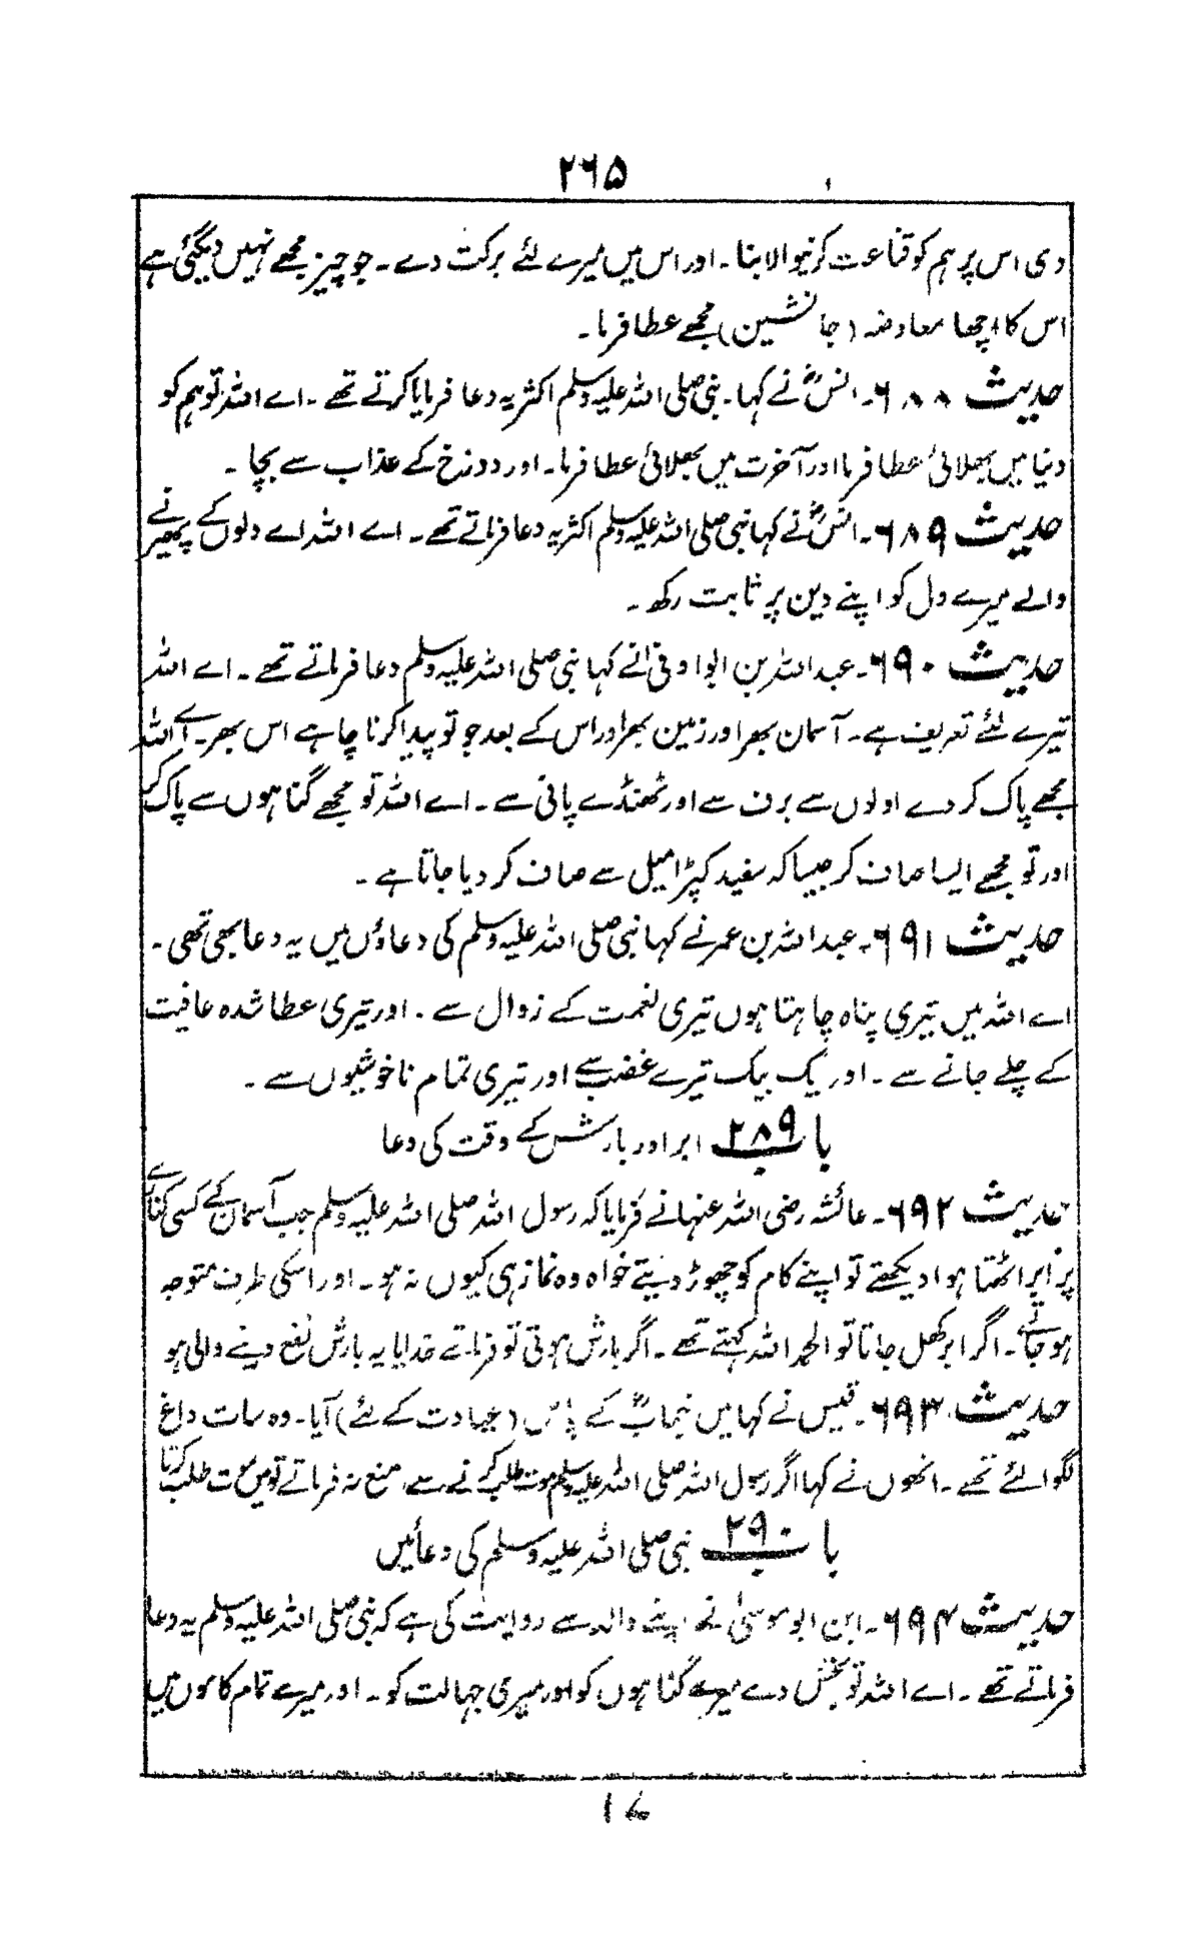 ۲۶۵
دی اس پر ہم کو قناعت کرنیوالا بنا۔ اور اس میں میرے لئے برکت دے۔ جو چیز مجھے نہیں دیگئی ہے
اس کا اچھا معاوضہ (جانشین) مجھے عطا فرما۔
حدیث ۶۸۸۔ انسؓ نے کہا۔ نبی صلی اللہ علیہ وسلم اکثر یہ دعا فرمایا کرتے تھے۔ اے اللہ تو ہم کو
دنیا میں بھلائی عطا فرما اور آخرت میں بھلائی عطا فرما۔ اور دوزخ کے عذاب سے بچا۔
حدیث ۶۸۹۔ انسؓ نے کہا نبی صلی اللہ علیہ وسلم اکثر یہ دعا فرماتے تھے۔ اے اللہ اے دلوں کے پھیرنے
والے میرے دل کو اپنے دین پر ثابت رکھ۔
حدیث ۶۹۰۔ عبد اللہ بن ابو اوفیٰ نے کہا نبی صلی اللہ علیہ وسلم دعا فرماتے تھے۔ اے اللہ
تیرے لئے تعریف ہے۔ آسمان بھر اور زمین بھر اور اس کے بعد جو تو پیدا کرنا چاہے اس بھر۔ اے اللہ
مجھے پاک کر دے اولوں سے برف سے اور ٹھنڈے پانی سے۔ اے اللہ تو مجھے گناہوں سے پاک کر
اور تو مجھے ایسا صاف کر جیسا کہ سفید کپڑا میل سے صاف کر دیا جاتا ہے۔
حدیث ۶۹۱۔ عبد اللہ بن عمر نے کہا نبی صلی اللہ علیہ وسلم کی دعاؤں میں یہ دعا بھی تھی۔
اے اللہ میں تیری پناہ چاہتا ہوں تیری نعمت کے زوال سے۔ اور تیری عطا شدہ عافیت
کے چلے جانے سے۔ اور یک بیک تیرے غضب سے اور تیری تمام ناخوشیوں سے۔
باب ۲۸۹ ابر اور بارش کے وقت کی دعا
حدیث ۶۹۲۔ عائشہ رضی اللہ عنہا نے فرمایا کہ رسول اللہ صلی اللہ علیہ وسلم جب آسمان کے کسی کنارے
پر ابر اٹھتا ہوا دیکھتے تو اپنے کام کو چھوڑ دیتے خواہ وہ نماز ہی کیوں نہ ہو۔ اور اسکی طرف متوجہ
ہو جاتے۔ اگر ابر کھل جاتا تو الحمد اللہ کہتے تھے۔ اگر بارش ہوتی تو فرماتے خدایا یہ بارش نفع دینے والی ہو
حدیث ۶۹۳۔ قیس نے کہا میں خبابؓ کے پاس (عیادت کے لئے) آیا۔ وہ سات داغ
لگوائے تھے۔ انھوں نے کہا اگر رسول اللہ صلی اللہ علیہ وسلم موت طلب کرنے سے منع نہ فرماتے تو میں موت طلب کرتا
باب ۲۹۰ نبی صلی اللہ علیہ وسلم کی دعائیں
حدیث ۶۹۴۔ ابن ابو موسیٰ نے اپنے والد سے روایت کی ہے کہ نبی صلی اللہ علیہ وسلم یہ دعا
فرماتے تھے۔ اے اللہ تو بخش دے میرے گناہوں کو اور میری جہالت کو۔ اور میرے تمام کاموں میں
۱۷